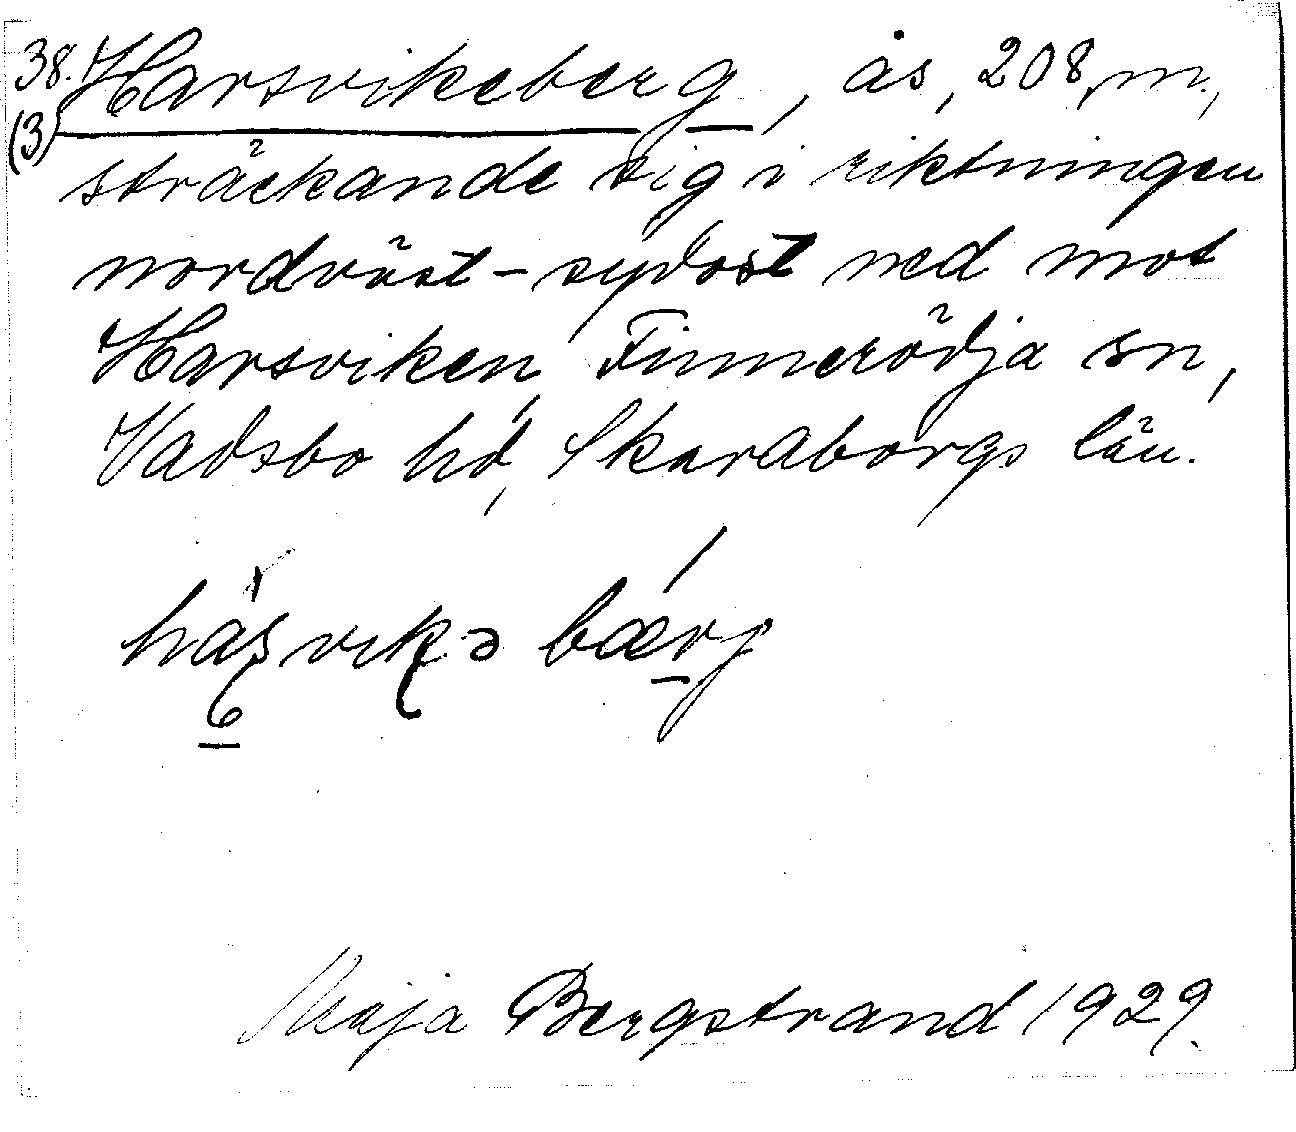 38. Harsvikeberg, ås, 208, m.,
(3)
sträckande sig i riktningen
nordväst - sydost ned mot
Harsviken, Finnerödja sn,
Vadsbo hd, Skaraborgs län.
Maja Bergstrand 1929.